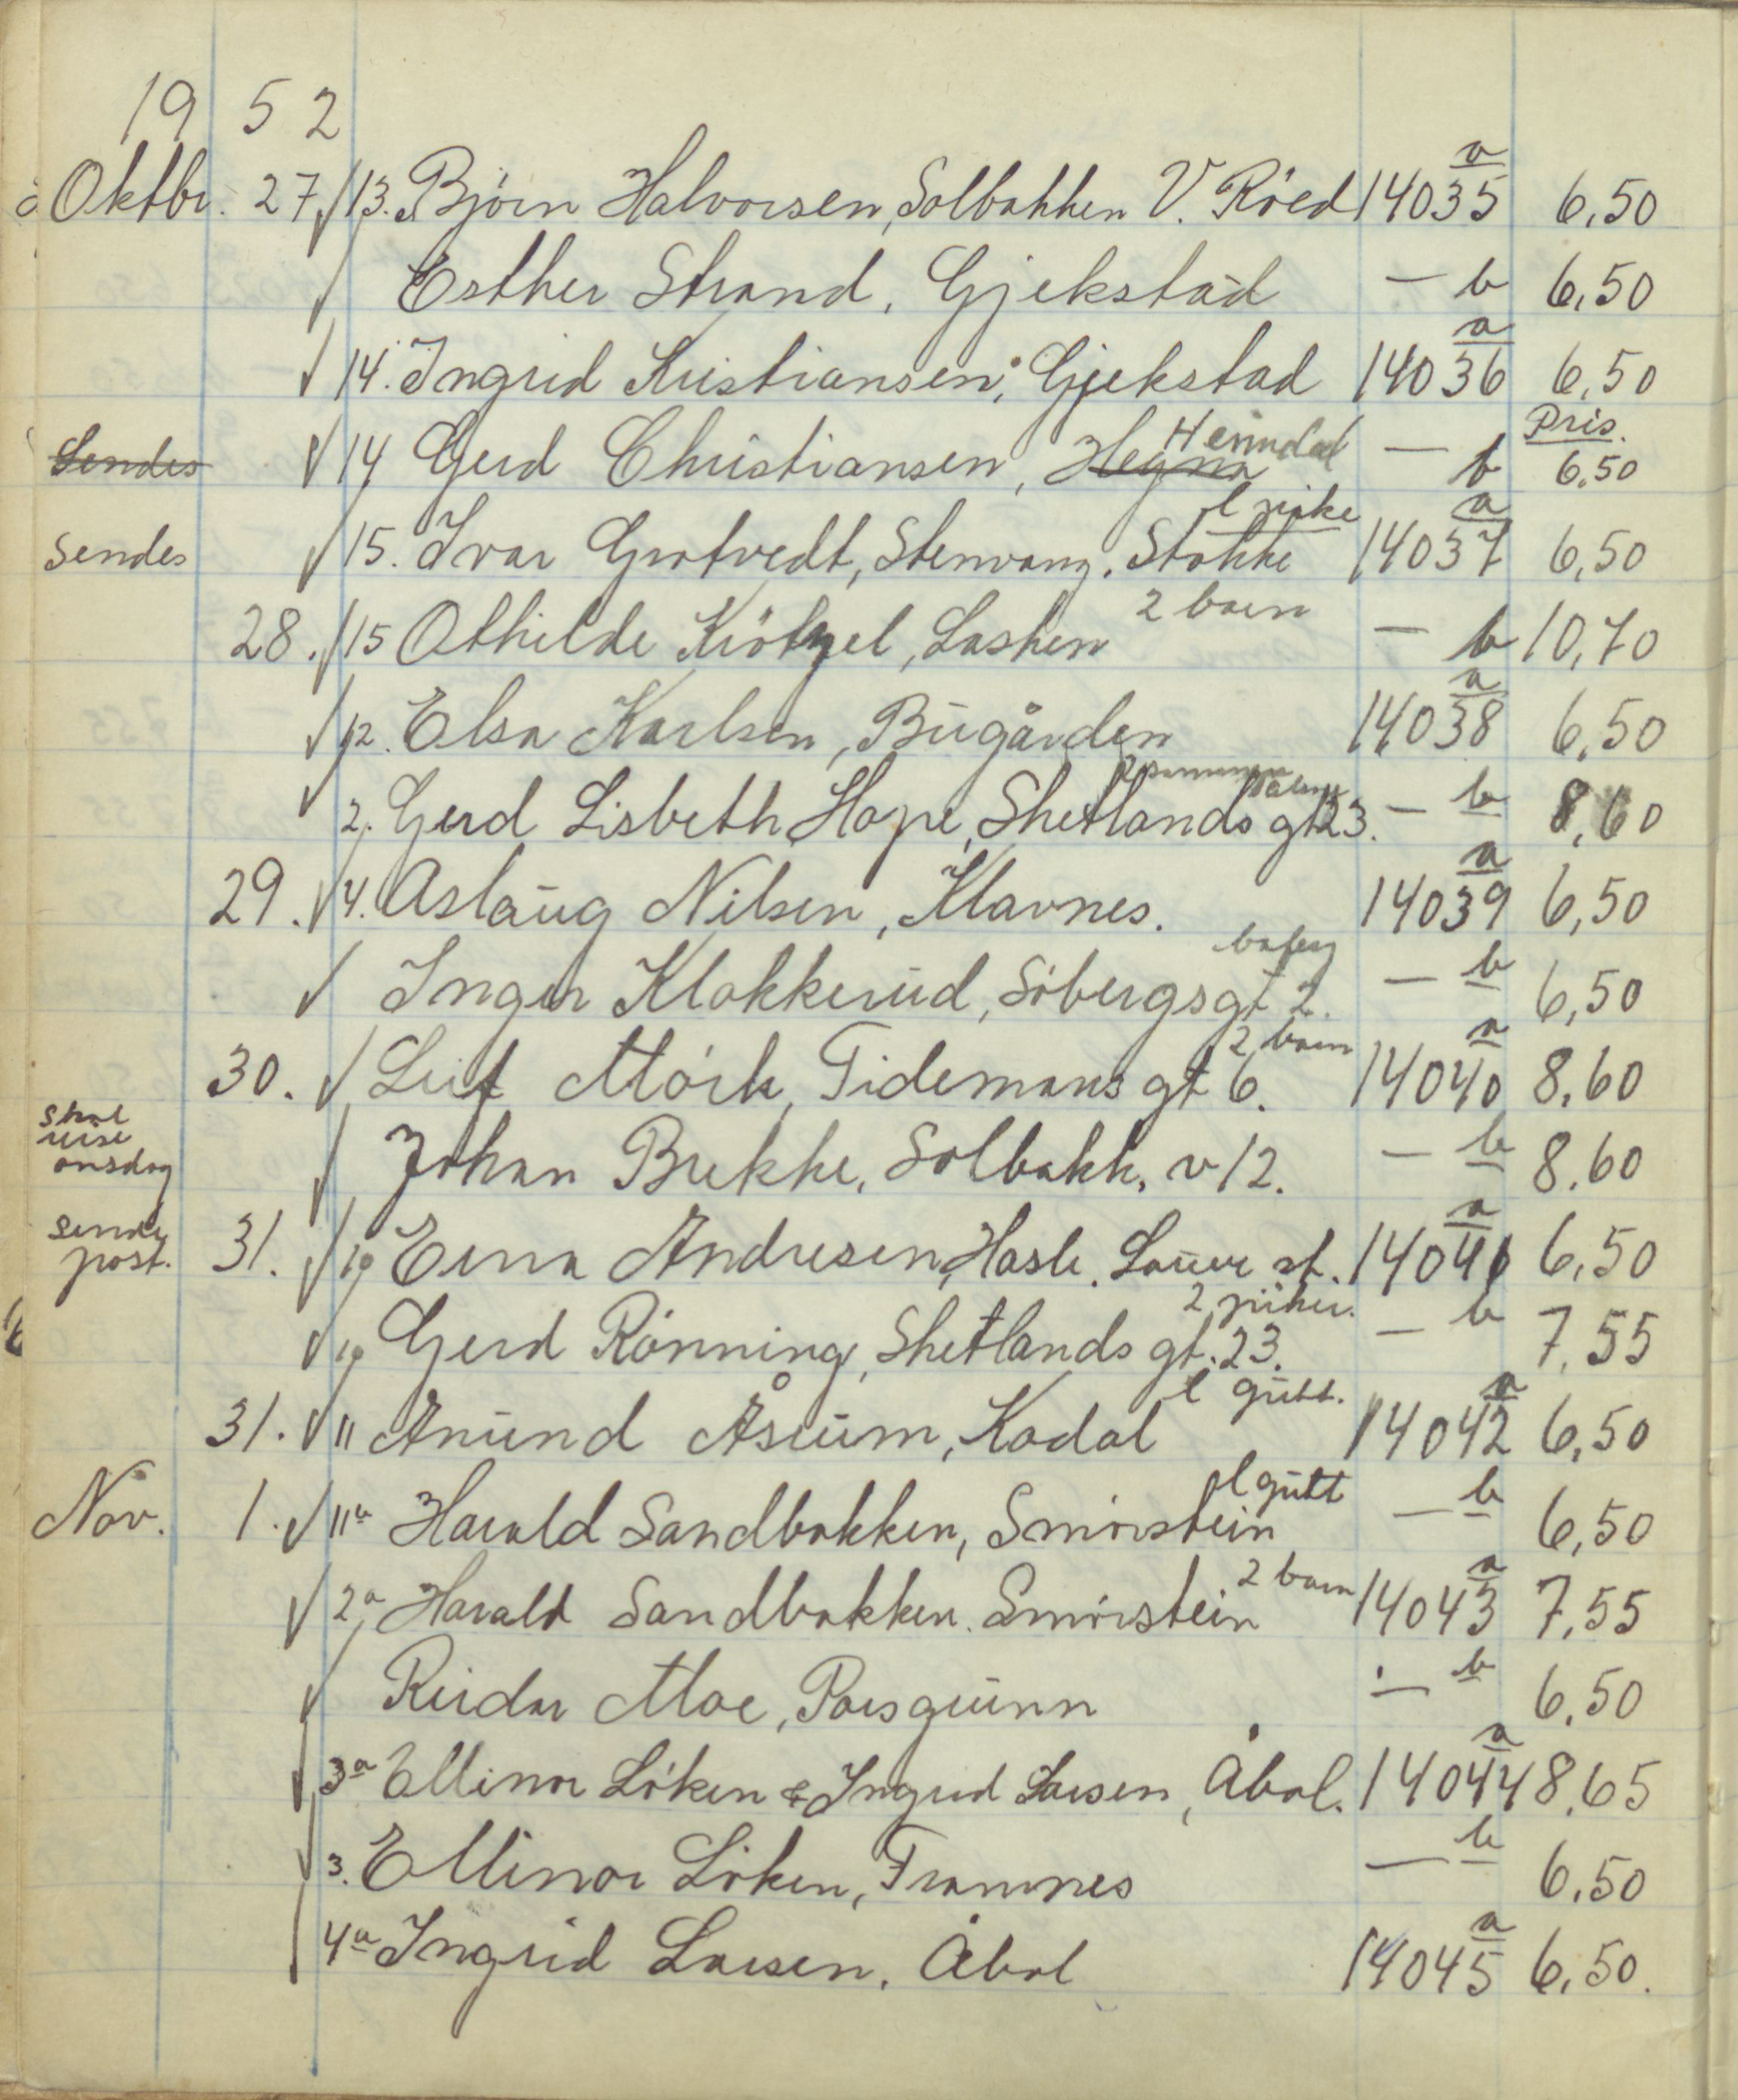 1952
Oktbr. 27 √ 13. Björn Halvorsen, Solbakken V. Röed 14035 a 6,50
√ Esther Strand, Gjekstad — b 6,50
√ 14. Ingrid Kristiansen, Gjekstad 14036 a 6,50
Pris.
Sendes √ 14 Gerd Christiansen, Hegna Heimdal — b 6,50
1 pike
Sendes √ 15. Ivar Grotvedt, Stenvang. Stokke 14037 a 6,50
2 barn
28. √ 15 Othilde Krötzel, Lasken — b 10,70
√ 12. Elsa Karlsen, Bugården 14038 a 6,50
√ 2. Gerd Lisbeth Hope, Shetlands gt 23. — b 8,60
29. √ 4. Aslaug Nilsen, Klavnes. 14039 a 6,50
baby
√ Inger Klokkerud, Söbergsgt 2. — b 6,50
2 barn
30. √ Leif Mörk, Tidemans gt 6. 14040 a 8,60
skal reise onsdag
√ Johan Brekke, Solbakk. v 12. — b 8,60
sendes post.
31. √ 10 Erna Andresen, Hasle. Lauve st. 14041 a 6,50
2 piker.
√ 10 Gerd Rönning, Shetlands gt. 23. — b 7,55
1 gutt.
31. √ 11 Anund Åsrum, Kodal 14042 a 6,50
1 gutt
Nov. 1. √ 11a Harald Sandbakken, Smörstein — b 6,50
2 barn
√ 2a Harald Sandbakken. Smörstein 14043 a 7,55
√ Reidar Moe, Porsgrunn — b 6,50
√ 3a Ellinor Löken & Ingrid Larsen, Åbol. 14044 a 8,65
√ 3. Ellinor Löken, Framnes — b 6,50
4a Ingrid Larsen. Åbol 14045 a 6,50.